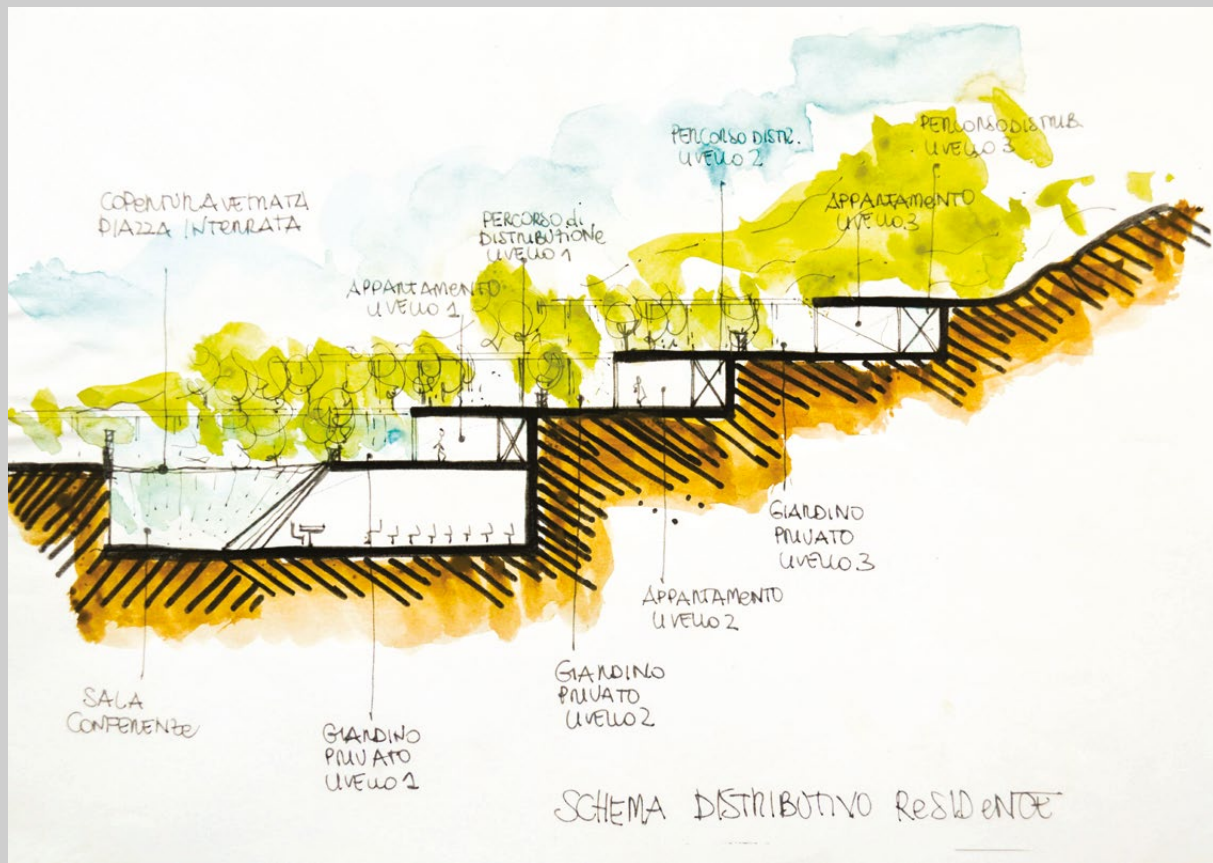 COPERTURA VETRATA
PIAZZA INTERRATA
APPARTAMENTO
LIVELLO 1
PERCORSO di
DISTRIBUTIONE
LIVELLO 1
PERCORSO DISTR.
LIVELLO 2
APPARTAMENTO
LIVELLO 3
PERCORSO DISTRIB.
LIVELLO 3
SALA
CONFERENZE
GIARDINO
PRIVATO
LIVELLO 1
GIARDINO
PRIVATO
LIVELLO 2
APPARTAMENTO
LIVELLO 2
GIARDINO
PRIVATO
LIVELLO 3
SCHEMA DISTRIBUTIVO ReSIDeNCE